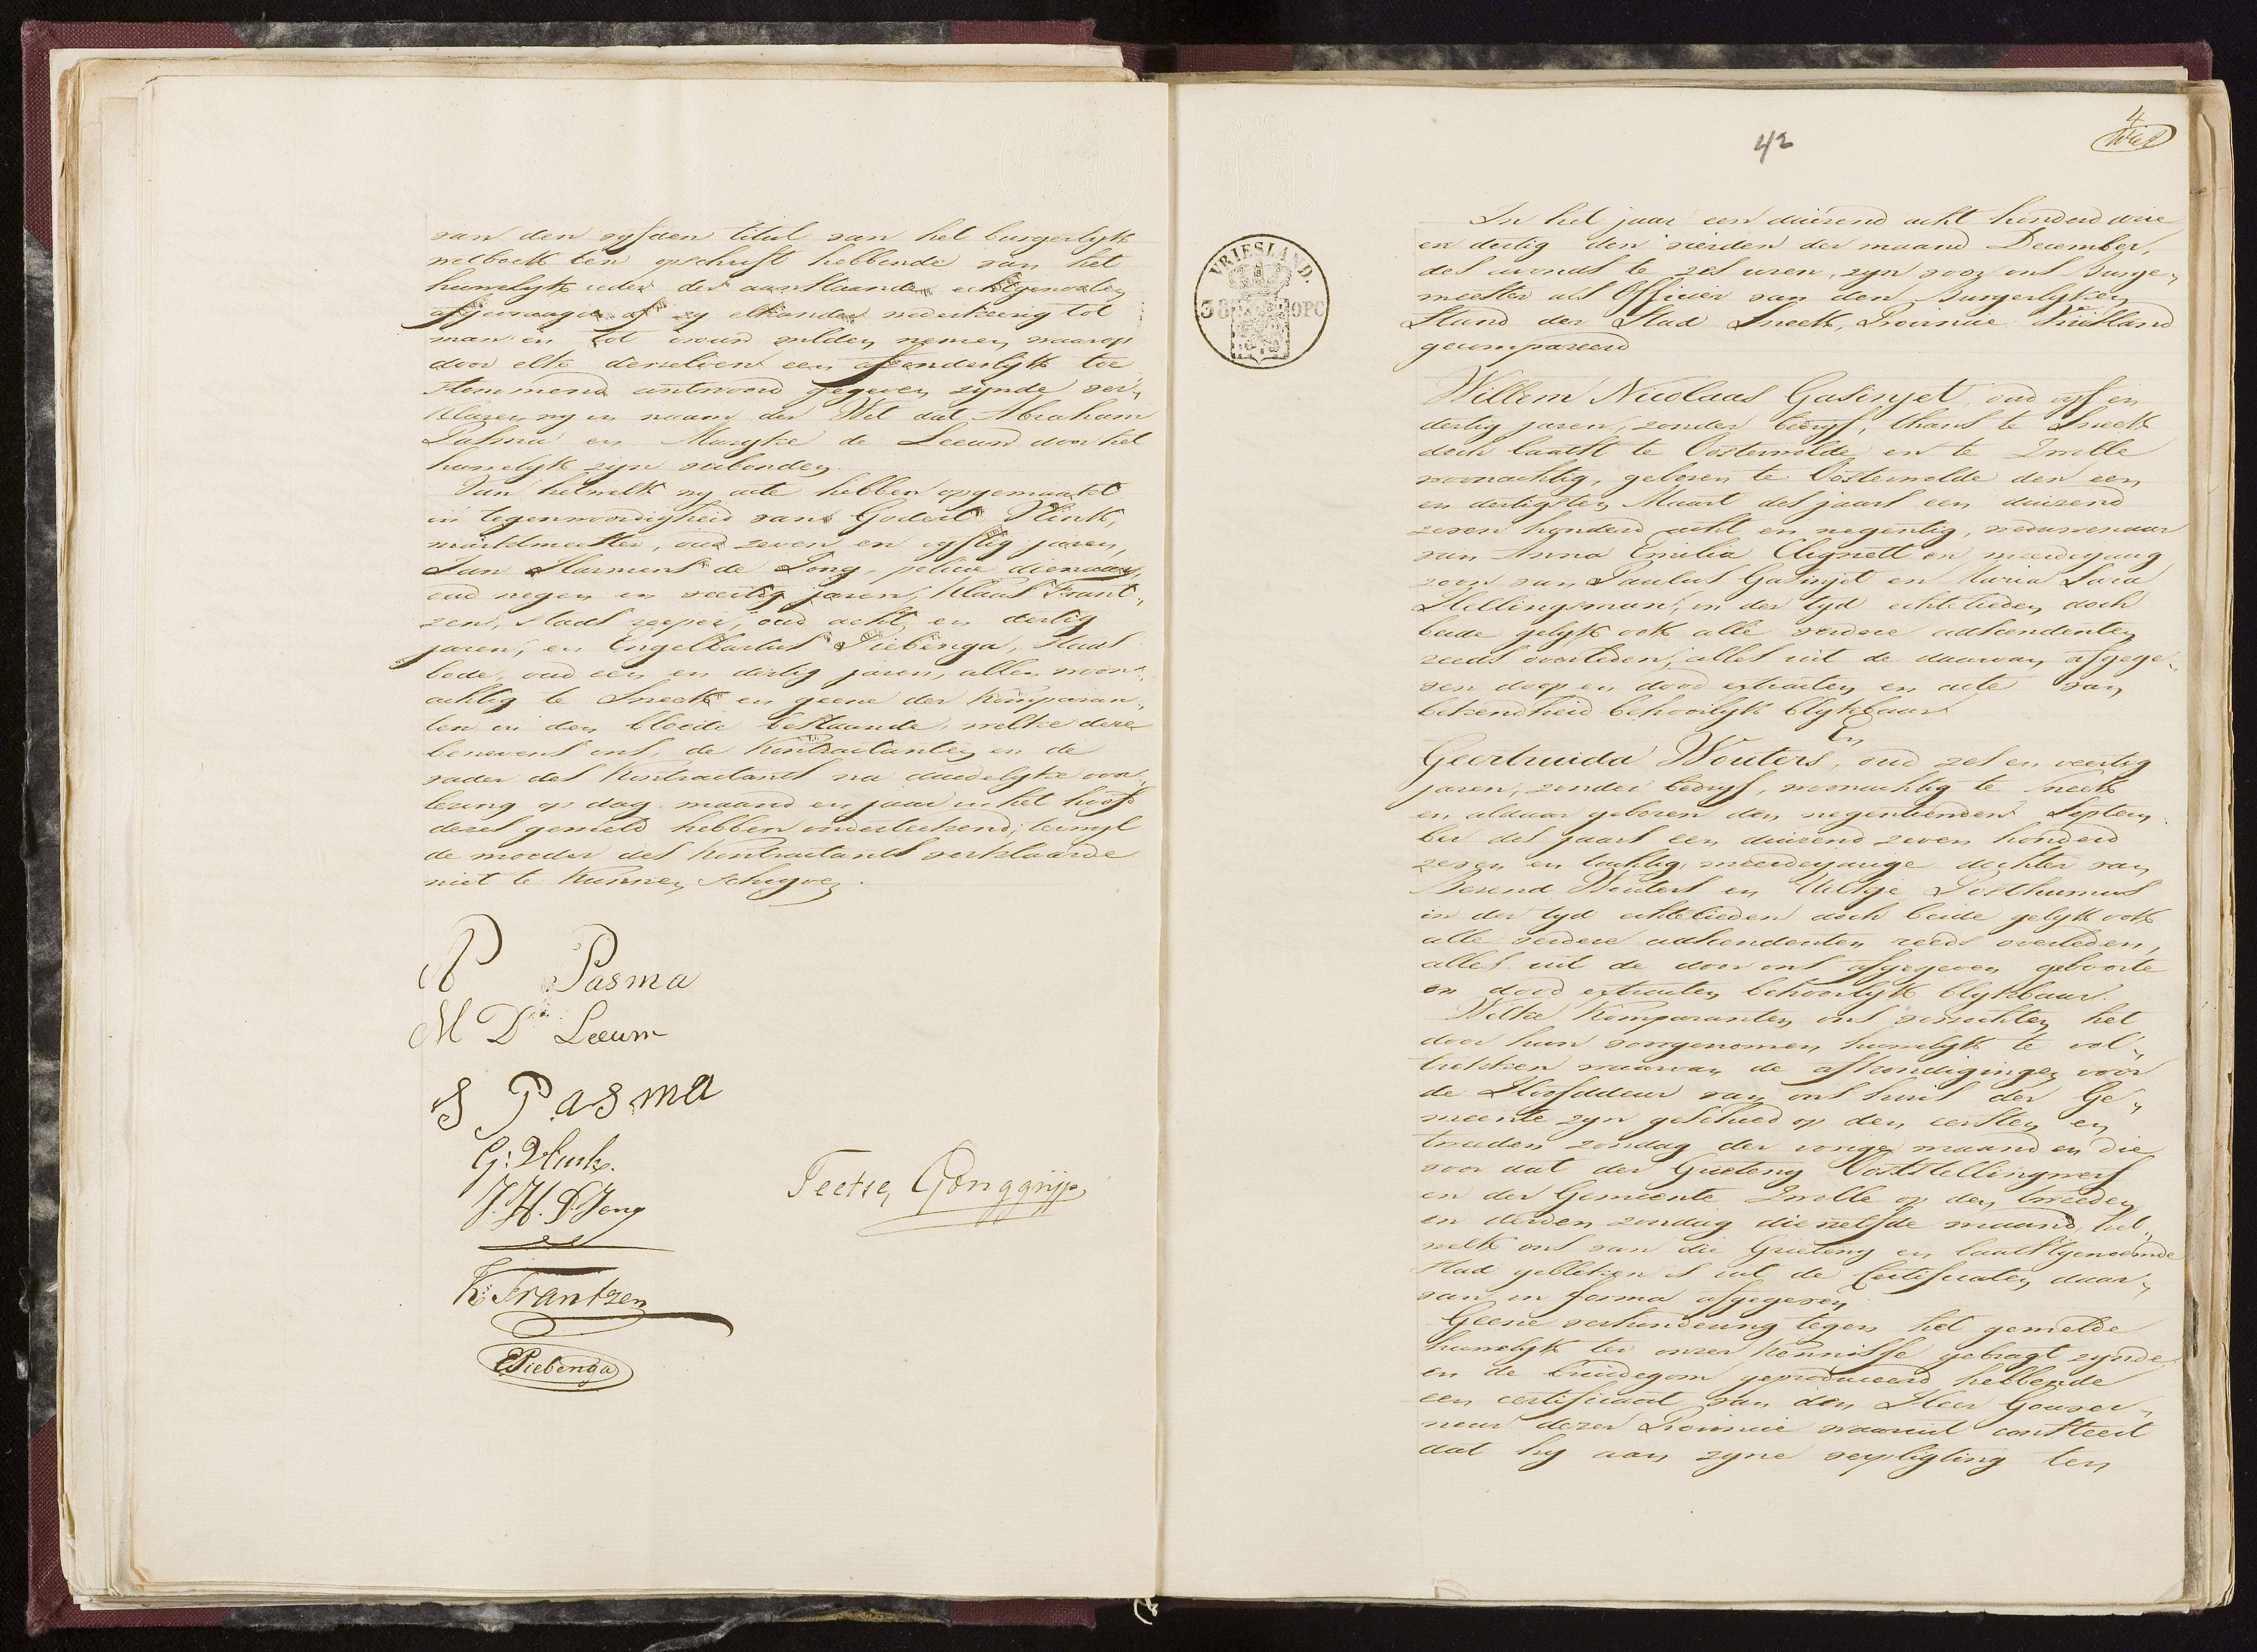 van den vyfden titul van het burgerlyk
wetboek ten opschrift hebbende van het
huwelyk ieder der aanstaande echtgenooten
afgevraagd of zy elkander wederkeerig tot
man en tot vrouw wilden nemen, waarop
door elk derzelven een afzonderlyk toe
stemmend antwoord gegeven zynde ver„
klaren wy in naam der Wet dat Abraham
Pasma en Marytke de Leeuw door het
huwelyk zyn verbonden.
Van hetwelk wy acte hebben opgemaakt
in tegenwoordigheid van Godert Vlink,
marktmeester, oud zeven en vyftig jaren,
Jan Harmens de Jong, policie dienaar,
oud negen en veertig jaren, Klaas Frant„
zen, stads veeger, oud acht en dertig
jaren, en Engelbartus Piebenga, stads
bode, oud een en dertig jaren, allen woon„
achtig te Sneek en geene der Komparan„
ten in den bloede bestaande, welke deze
benevens ons, de Kontractanten en de
vader des Kontractants na duidelyke voor„
lezing op dag maand en jaar in het hoofd
dezes gemeld hebben onderteekend, terwyl
de moeder des Kontractants verklaarde
niet te kunnen schryven.
A Pasma
M D Leeuw
S Pasma
G: Vlink.
J. H. D Jong
Teetse Gonggryp
K: Frantzen
EPiebenga
42
4
VRIESLAND.
38 OPC
In het jaar een duizend acht honderd drie
en dertig den vierden der maand December,
des avonds te zes uren, zyn voor ons Burge„
meester als Officier van den Burgerlyken
Stand der Stad Sneek, Provincie Vriesland
gecompareerd
Willem Nicolaas Gasinjet, oud vyf en
dertig jaren, zonder bedryf, thans te Sneek
doch laatst te Oosterwolde en te Zwolle
woonachtig, geboren te Oosterwolde den een
en dertigsten Maart des jaars een duizend
zeven honderd acht en negentig, weduwenaar
van Anna Emilia Clignett en meerderjarig
zoon van Paulus Gasinjet en Maria Sara
Hellingsman, in der tyd echtelieden doch
beide gelyk ook alle verdere adscendenten
reeds overleden, alles uit de daarvan afgege„
ven doop en dood extracten en acte van
bekendheid behoorlyk blykbaar
En
Geertruida Wouters, oud zes en veertig
jaren, zonder bedryf, woonachtig te Sneek
en aldaar geboren den negentienden Septem„
ber des jaars een duizend zeven honderd
zeven en tachtig, meerderjarige dochter van
Berend Wouters en Uilkje Posthumus
in der tyd echtelieden doch beide gelyk ook
alle verdere adscendenten reeds overleden,
alles uit de door ons afgegeven geboorte
en dood extracten behoorlyk blykbaar.
Welke Komparanten ons verzochten het
door hun voorgenomen huwelyk te vol„
trekken waarvan de afkondigingen voor
de Hoofddeur van ons huis der Ge„
meente zyn geschied op den eersten en
tweeden zondag der vorige maand en die
voor dat der Grieteny Ooststellingwerf
en der Gemeente Zwolle op den tweeden
en derden zondag diezelfde maand, het„
welk ons van die Grieteny en laatstgenoemde
stad gebleken is uit de Certificaten daar„
van in forma afgegeven
Geene verhindering tegen het gemelde
huwelyk ter onzer kennisse gebragt zynde
en de bruidegom geproduceerd hebbende
een certificaat van den Heer Gouver„
neur dezer Provincie waaruit consteert
dat hy aan zyne verpligting ten